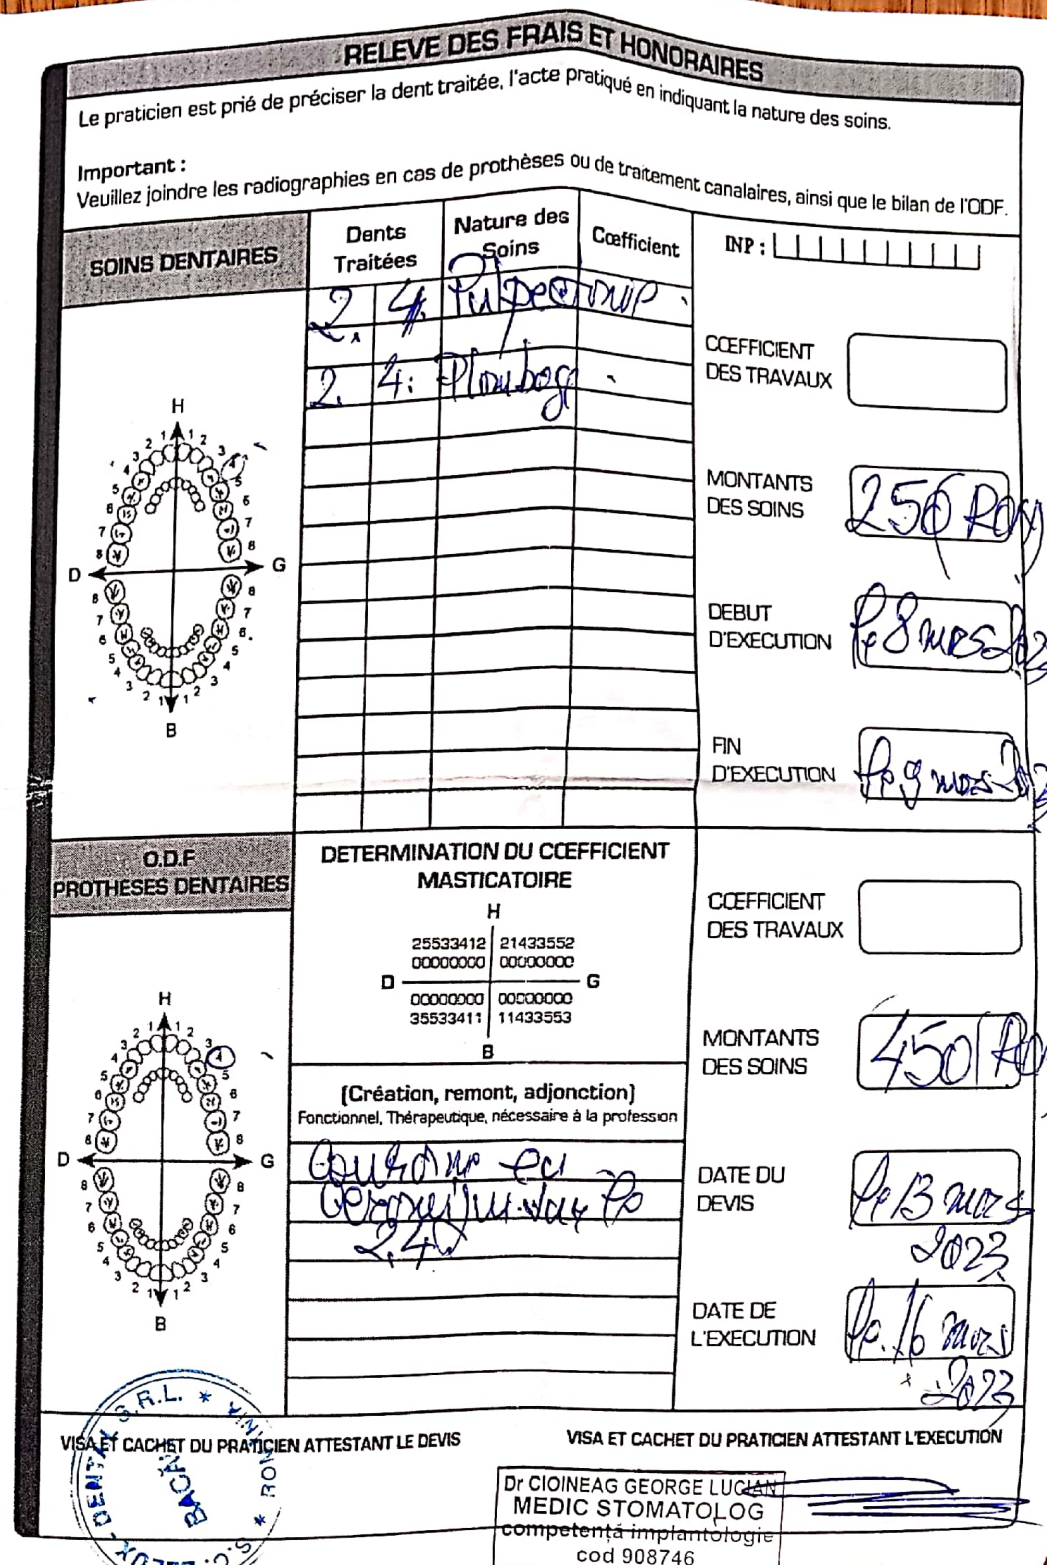 RELEVE DES FRAIS ET HONORAIRES
Le praticien est prié de préciser la dent traitée, l'acte pratiqué en indiquant la nature des soins.
Important :
Veuillez joindre les radiographies en cas de prothèses ou de traitement canalaires, ainsi que le bilan de l'ODF.
SOINS DENTAIRES
Dents Traitées
Nature des Soins
Cœfficient
INP :
2. 4.
2. 4: Plombage
CŒFFICIENT DES TRAVAUX
MONTANTS DES SOINS
250 Ron
DEBUT D'EXECUTION
8 mars
FIN D'EXECUTION
9 mars
H
D
G
B
O.D.F
PROTHESES DENTAIRES
DETERMINATION DU CŒFFICIENT
MASTICATOIRE
H
25533412 21433552
00000000 00000000
D G
00000000 00000000
35533411 11433553
B
CŒFFICIENT DES TRAVAUX
MONTANTS DES SOINS
450
(Création, remont, adjonction)
Fonctionnel, Thérapeutique, nécessaire à la profession
24
DATE DU DEVIS
13 mars
2023
DATE DE L'EXECUTION
16 mars
2023
H
D
G
B
VISA ET CACHET DU PRATICIEN ATTESTANT LE DEVIS
VISA ET CACHET DU PRATICIEN ATTESTANT L'EXECUTION
DENTAL S.R.L. *
BACĂU
Dr CIOINEAG GEORGE LUCIAN
MEDIC STOMATOLOG
competență implantologie
cod 908746